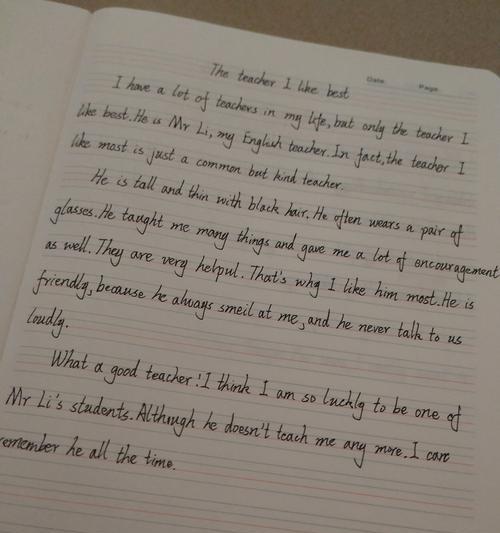 Date. Page.
The teacher I like best
I have a lot of teachers in my life, but only the teacher I
like best. He is Mr Li, my English teacher. In fact, the teacher I
like most is just a common but kind teacher.
He is tall and thin with black hair. He often wears a pair of
glasses. He taught me many things and gave me a lot of encouragement
as well. They are very helpul. That's why I like him most. He is
friendly, because he always smeil at me, and he never talk to us
loudly.
What a good teacher! I think I am so luckly to be one of
Mr Li's students. Although he doesn't teach me any more. I can
remember he all the time.